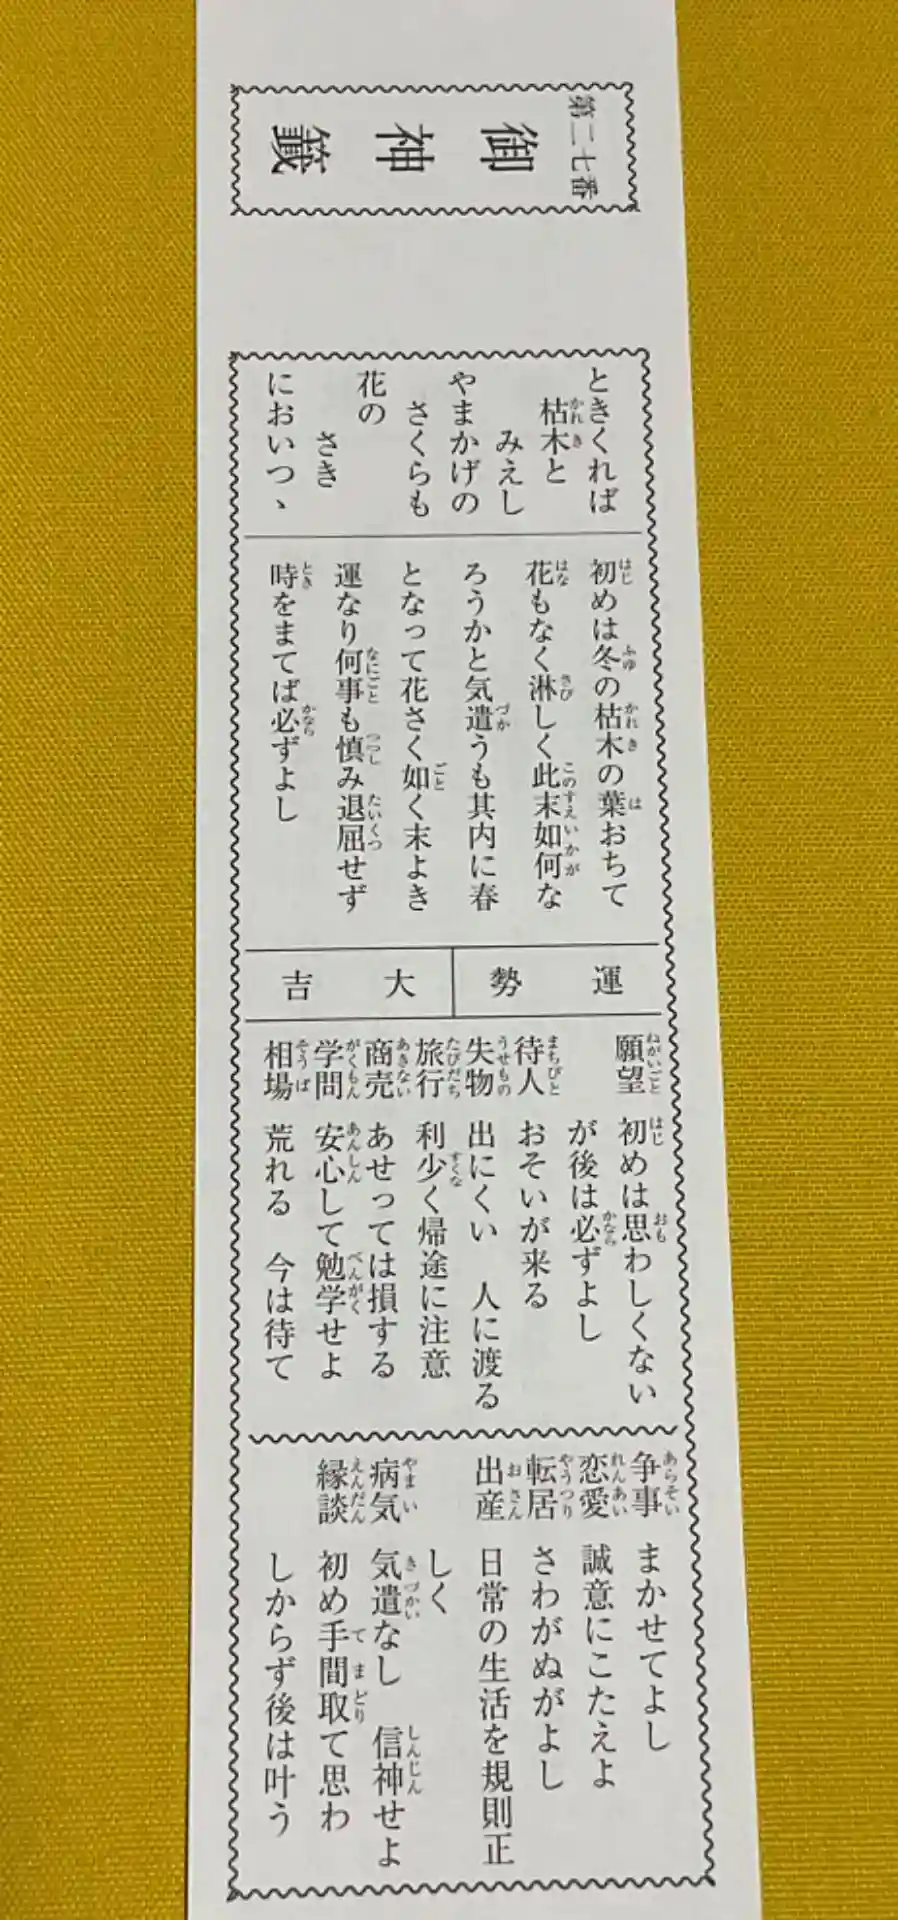 第二七番
御神籤
ときくれば
枯木と
みえし
やまかげの
さくらも
花の
さき
においつゝ
初めは冬の枯木の葉おちて
花もなく淋しく此末如何な
ろうかと気遣うも其内に春
となって花さく如く末よき
運なり何事も慎み退屈せず
時をまてば必ずよし
運勢 大吉
願望 初めは思わしくない
が後は必ずよし
待人 おそいが来る
失物 出にくい 人に渡る
旅行 利少く帰途に注意
商売 あせっては損する
学問 安心して勉学せよ
相場 荒れる 今は待て
争事 まかせてよし
恋愛 誠意にこたえよ
転居 さわがぬがよし
出産 日常の生活を規則正
しく
病気 気遣なし 信神せよ
縁談 初め手間取て思わ
しからず後は叶う